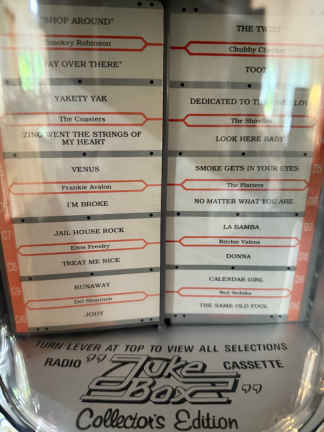 "SHOP AROUND"
Smokey Robinson
WAY OVER THERE"
YAKETY YAK
The Coasters
ZING WENT THE STRINGS OF
MY HEART
VENUS
Frankie Avalon
I'M BROKE
JAIL HOUSE ROCK
Elvis Presley
TREAT ME NICE
RUNAWAY
Del Shannon
JODY
THE TWIST
Chubby Checker
TOOT
DEDICATED TO THE
The Shirelles
LOOK HERE BABY
SMOKE GETS IN YOUR EYES
The Platters
NO MATTER WHAT YOU ARE
LA BAMBA
Ritchie Valens
DONNA
CALENDAR GIRL
Neil Sedaka
THE SAME OLD FOOL
TURN LEVER AT TOP TO VIEW ALL SELECTIONS
RADIO "Juke Box" CASSETTE
Collector's Edition